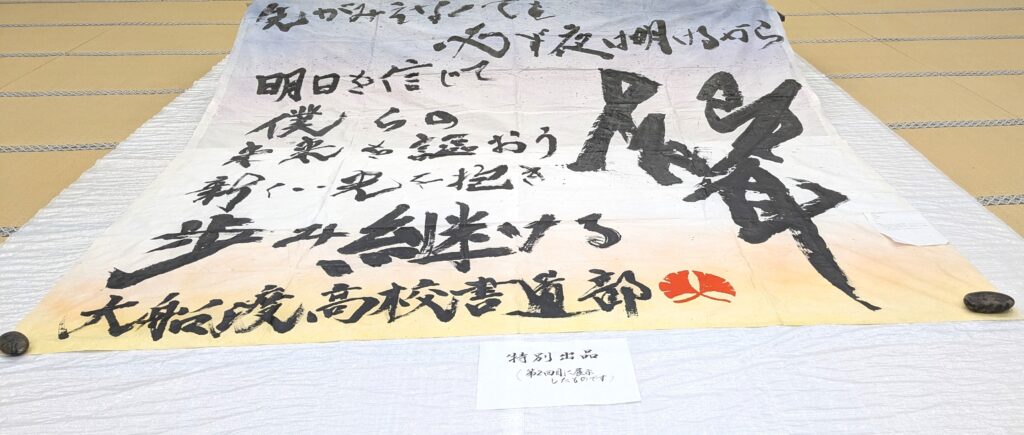 先がみえなくても
必ず夜は明けるから
明日を信じて
僕らの
未来を謳おう
新しい光を抱き
歩み継ける
大船渡高校書道部
特別出品
(第2回目に展示
したものです)